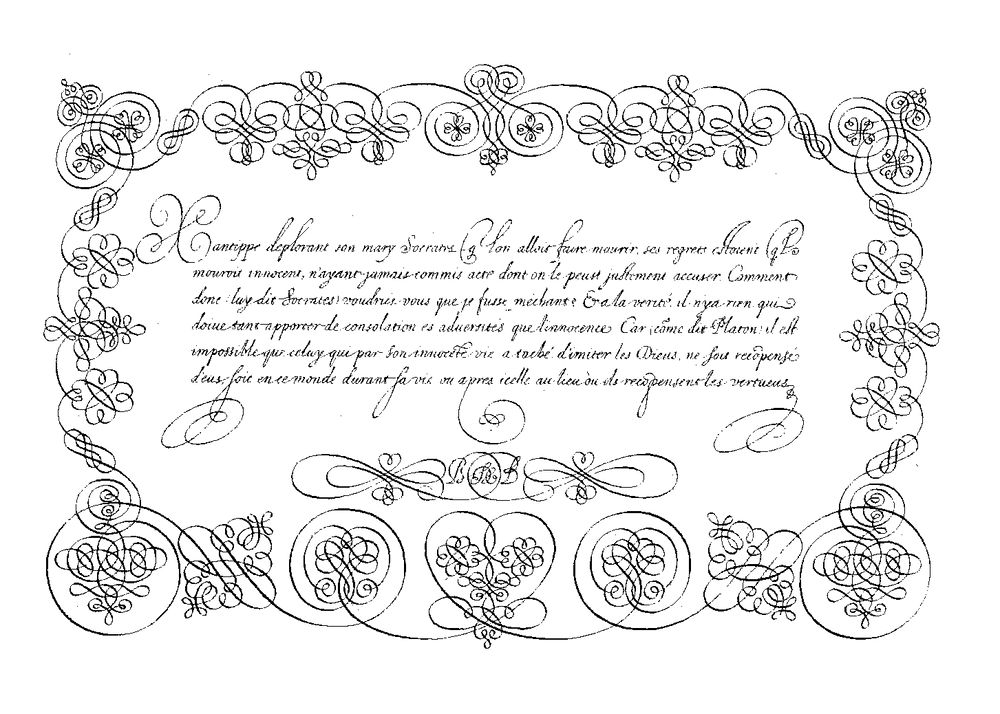 Xantippe deplorant son mary Socrates q̃ l'on alloit faire mourir, ses regrets estoient q̃ l
mouroit innocent, n'ayant jamais commis acte dont on le peust justement accuser. Comment
donc (luy dit Socrates) voudriez vous que je fusse méchant? & a la verité, il n'y a rien qui
doive tant apporter de consolation es adversités que l'innocence. Car, cõme dit Platon, il est
impossible que celuy qui par son innocẽte vie a taché d'imiter les Dieus, ne soit recõpensé
d'eus, soit en ce monde durant sa vie, ou apres icelle au lieu où ils recõpensent les vertueus